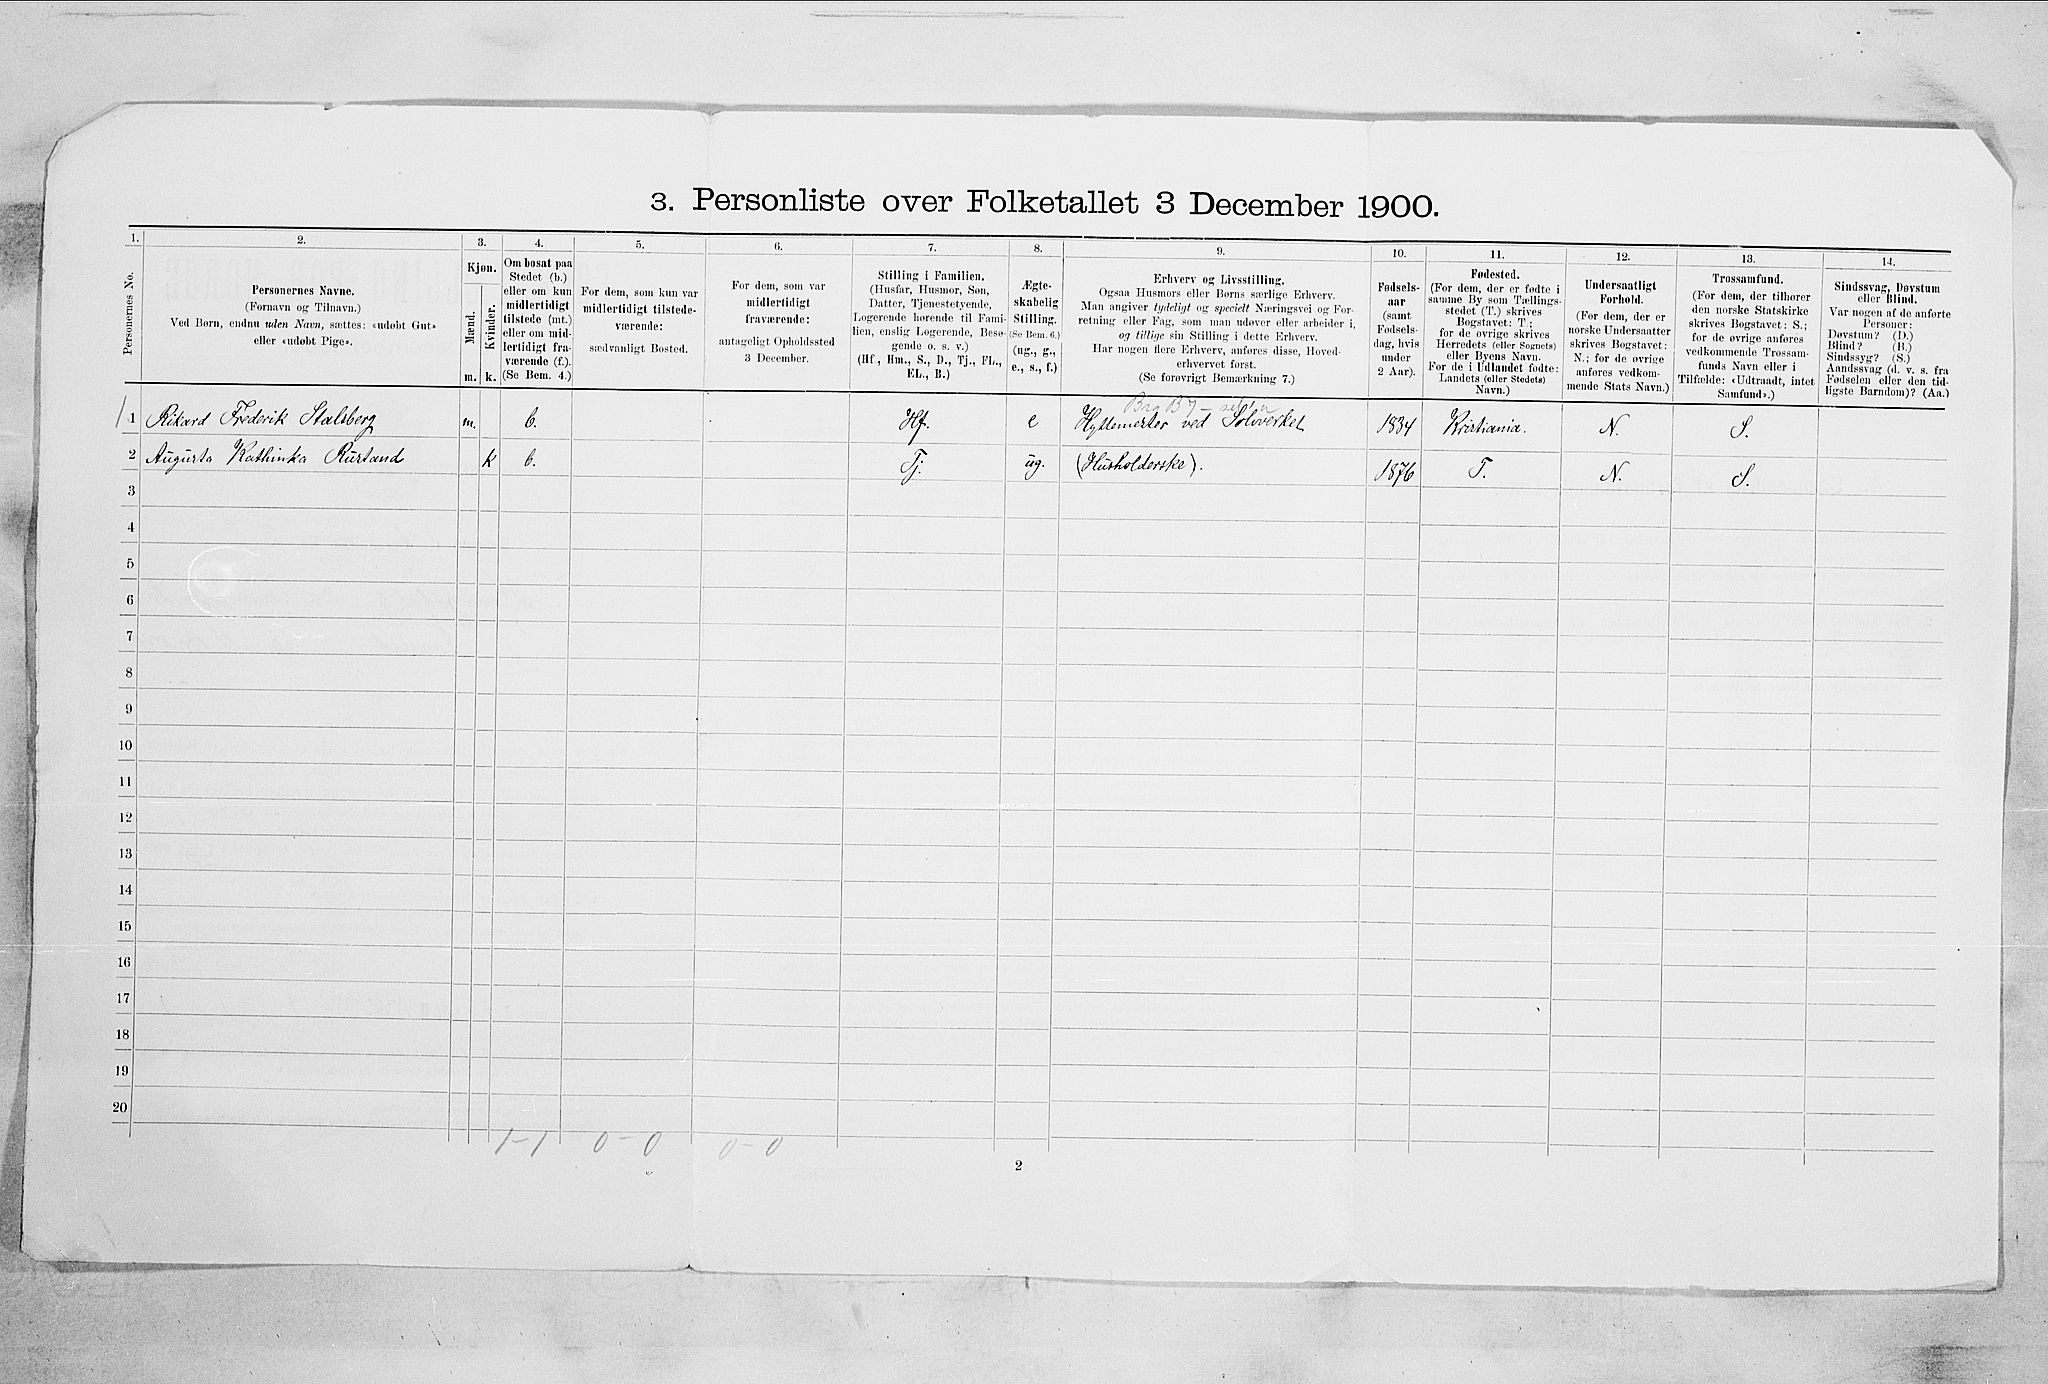 3. Personliste over Folketallet 3 December 1900.
1. 2. 3. 4. 5. 6. 7. 8. 9. 10. 11. 12. 13. 14.
Personernes No.
Personernes Navne.
(Fornavn og Tilnavn.)
Ved Børn, endnu uden Navn, sættes: «udøbt Gut»
eller «udøbt Pige».
Kjøn.
Mænd.
Kvinder.
m. k.
Om bosat paa
Stedet (b.)
eller om kun
midlertidigt
tilstede (mt.)
eller om mid-
lertidigt fra-
værende (f.).
(Se Bem. 4.)
For dem, som kun var
midlertidigt tilstede-
værende:
sædvanligt Bosted.
For dem, som var
midlertidigt
fraværende:
antageligt Opholdssted
3 December.
Stilling i Familien.
(Husfar, Husmor, Søn,
Datter, Tjenestetyende,
Logerende hørende til Fami-
lien, enslig Logerende, Besø-
gende o. s. v.)
(Hf., Hm., S., D., Tj., FL.,
EL., B.)
Ægte-
skabelig
Stilling.
(Se Bem. 6.)
(ug., g.,
e., s., f.)
Erhverv og Livsstilling.
Ogsaa Husmors eller Børns særlige Erhverv.
Man angiver tydeligt og specielt Næringsvei og For-
retning eller Fag, som man udøver eller arbeider i,
og tillige sin Stilling i dette Erhverv.
Har nogen flere Erhverv, anføres disse, Hoved-
erhvervet først.
(Se forøvrigt Bemærkning 7.)
Fødsels-
aar
(samt
Fødsels-
dag, hvis
under
2 Aar).
Fødested.
(For dem, der er fødte i
samme By som Tællings-
stedet (T.) skrives
Bogstavet: T.;
for de øvrige skrives
Herredets (eller Sognets)
eller Byens Navn.
For de i Udlandet fødte:
Landets (eller Stedets)
Navn.)
Undersaatligt
Forhold.
(For dem, der er
norske Undersaatter
skrives Bogstavet:
N.; for de øvrige
anføres vedkom-
mende Stats Navn.)
Trossamfund.
(For dem, der tilhører
den norske Statskirke
skrives Bogstavet: S.;
for de øvrige anføres
vedkommende Trossam-
funds Navn eller i
Tilfælde: «Udtraadt, intet
Samfund».)
Sindssvag, Døvstum
eller Blind.
Var nogen af de anførte
Personer:
Døvstum? (D.)
Blind? (B.)
Sindssyg? (S.)
Aandssvag (d. v. s. fra
Fødselen eller den tid-
ligste Barndom)? (Aa.)
1 Rikard Frederik Stalsberg m. b. Hf. e Hyttemester ved Sølvverket 1834 Kristiania. N. S.
2 Augusta Kathinka Rustand k b. Tj. ug. (Husholderske). 1876 T. N. S.
3
4
5
6
7
8
9
10
11
12
13
14
15
16
17
18
19
20
1-1 0-0 0-0
2